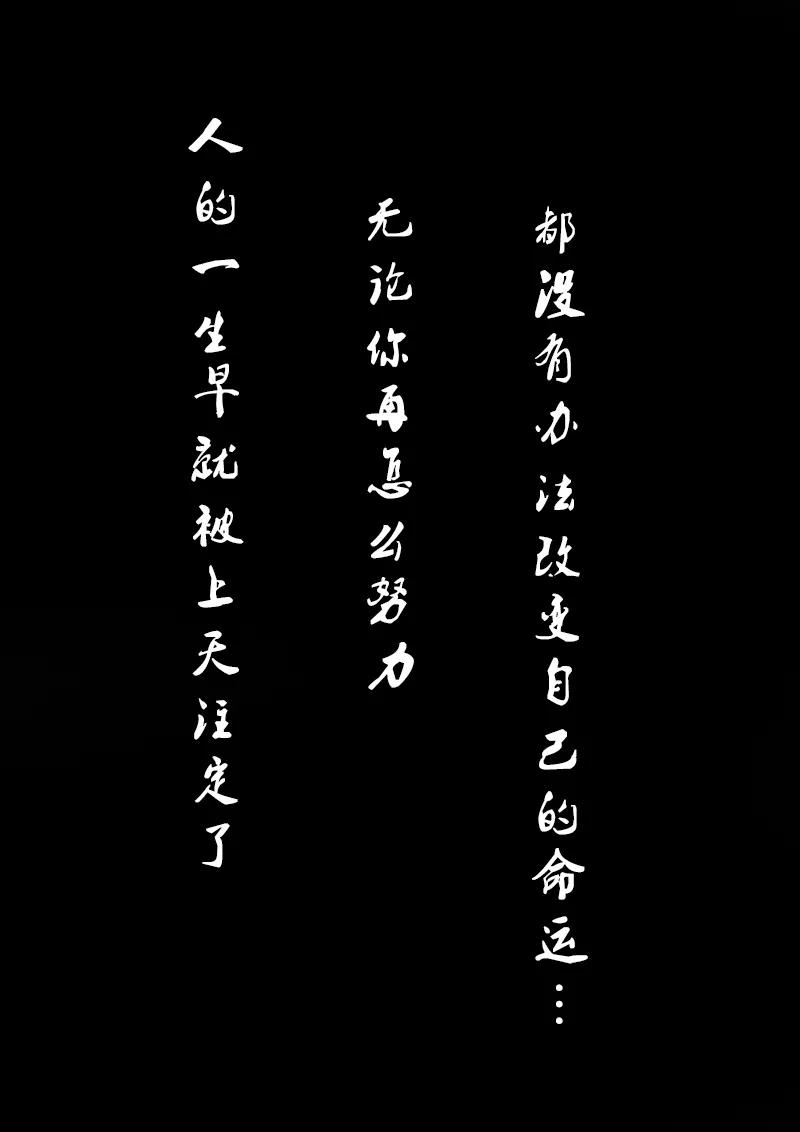 人的一生早就被上天注定了
无论你再怎么努力
都没有办法改变自己的命运…